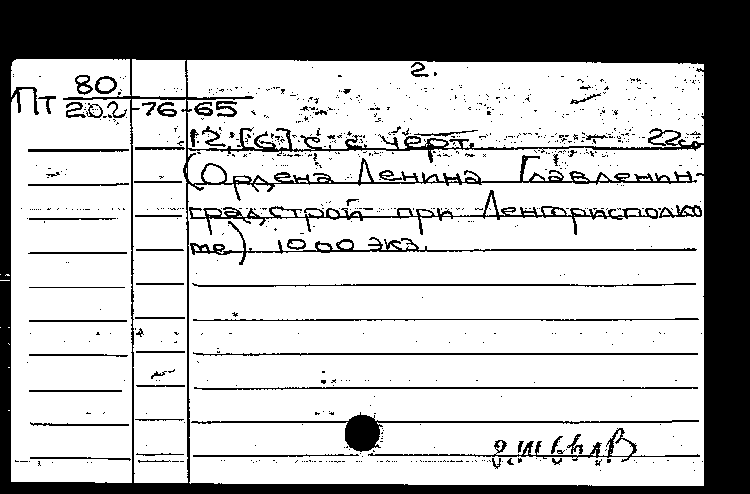 2.
Пт 80.
202-76-65
12, [6] с. с черт. 22см
(Ордена Ленина Главленин-
градстрой при Ленгорисполко
ме). 1000 экз.